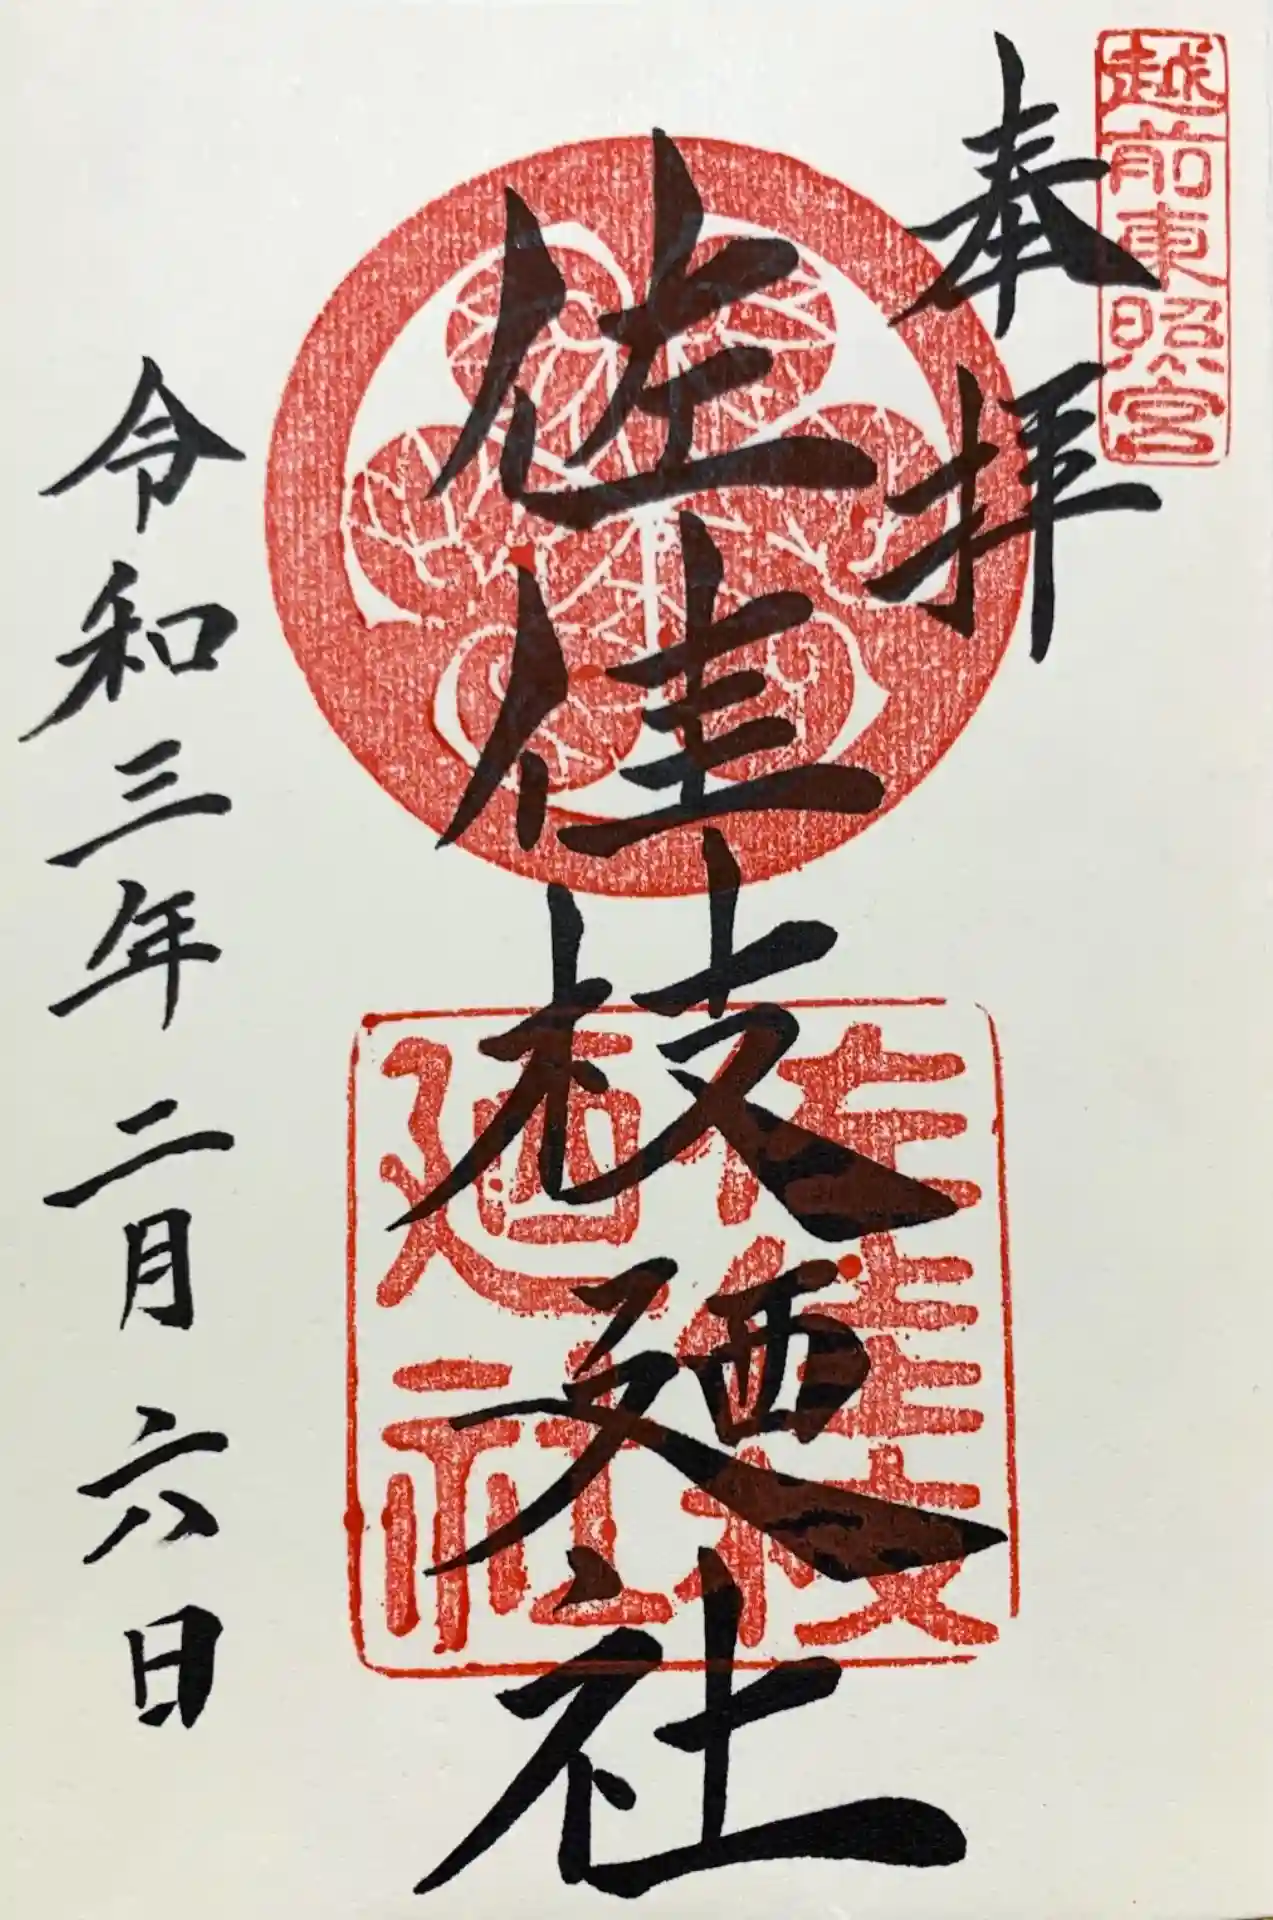 越前東照宮
奉拝
佐佳枝廼社
佐佳枝
廼社
令和三年二月六日